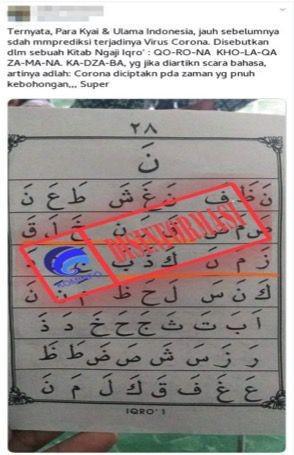 Ternyata, Para Kyai & Ulama Indonesia, jauh sebelumnya
sdah mmprediksi terjadinya Virus Corona. Disebutkan
dlm sebuah Kitab Ngaji Iqro' : QO-RO-NA KHO-LA-QA
ZA-MA-NA. KA-DZA-BA, yg jika diartikn scara bahasa,
artinya adlah: Corona diciptakn pda zaman yg pnuh
kebohongan,,, Super
٢٨
نَ
نَ ظَ فَ نَ غَ شَ طَ عَ نَ
خَ لَ قَ
DISINFORMASI
زَ مَ نَ كَ ذَ بَ
KOMINFO
كَ نَ سَ لَ حَ ظَ
اَ بَ تَ ثَ جَ حَ خَ دَ ذَ
رَ زَ سَ شَ صَ ضَ طَ ظَ
عَ غَ فَ قَ كَ لَ مَ نَ
IQRO' 1